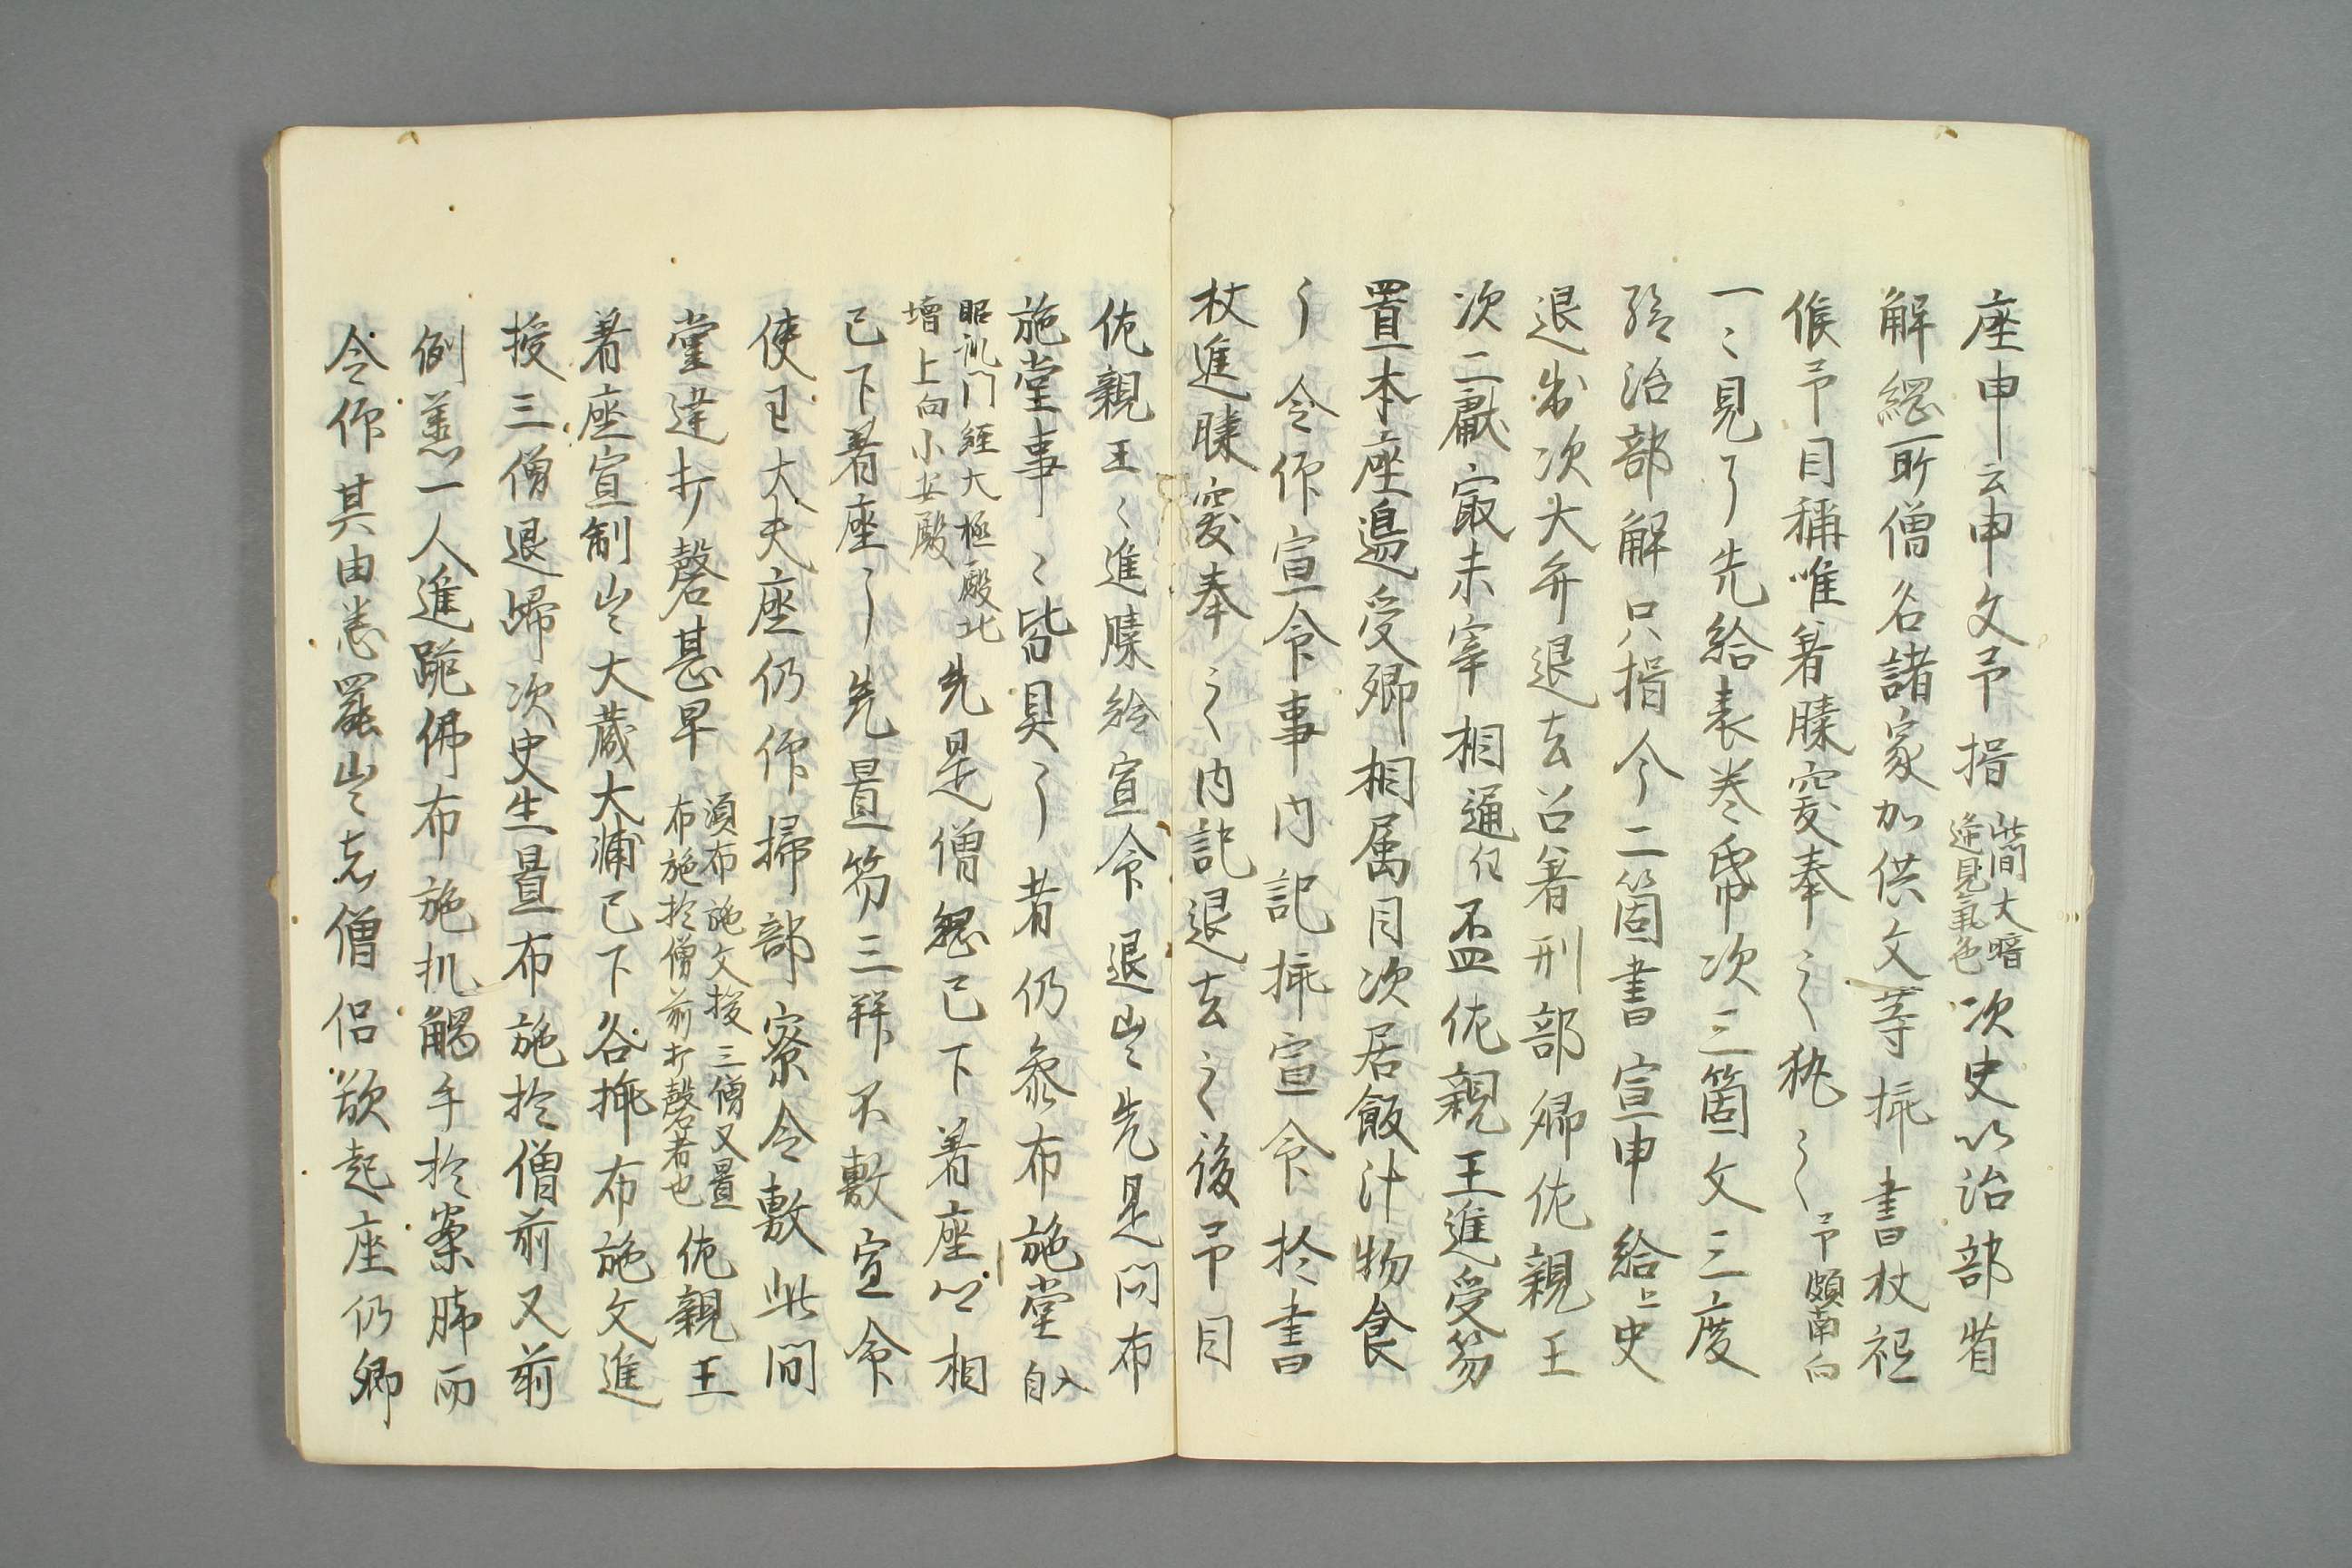 座申云申文予揖此間大暗逆見氣色次史以治部省
解綱所僧名諸家加供文等挿書杖祗
候予目稱唯着膝突奉之執之予頗南向
一〻見了先給表巻帋次三箇文三度
治部解只揖今二箇書宣申給上史
退出次大弁退去召着刑部卿佐親王
次二献寂未宰相通任盃佐親王進受笏
置本座邉受卿相属目次居飯汁物食
了令作宣命事内記挿宣命於書
杖進膝突奉之内記退去之後予目
佐親王〻進膝給宣命退出先是問布
施堂事〻皆具了者仍参布施堂自入
昭訓門經大極殿北壇上向小安殿先是僧綱已下着座公相
已下着座了先置笏三拜不敷宣命
使王大夫座仍仰掃部寮令敷此間
堂達打磬甚早須布施文授三僧又置布施於僧前打磬者也佐親王
着座宣制出大蔵大浦已下各捧布施文進
授三僧退歸次史生置布施於僧前又前
例差一人進跪佛布施机觸手於案脚而
令作其由差罷出者僧侶欲起座仍卿